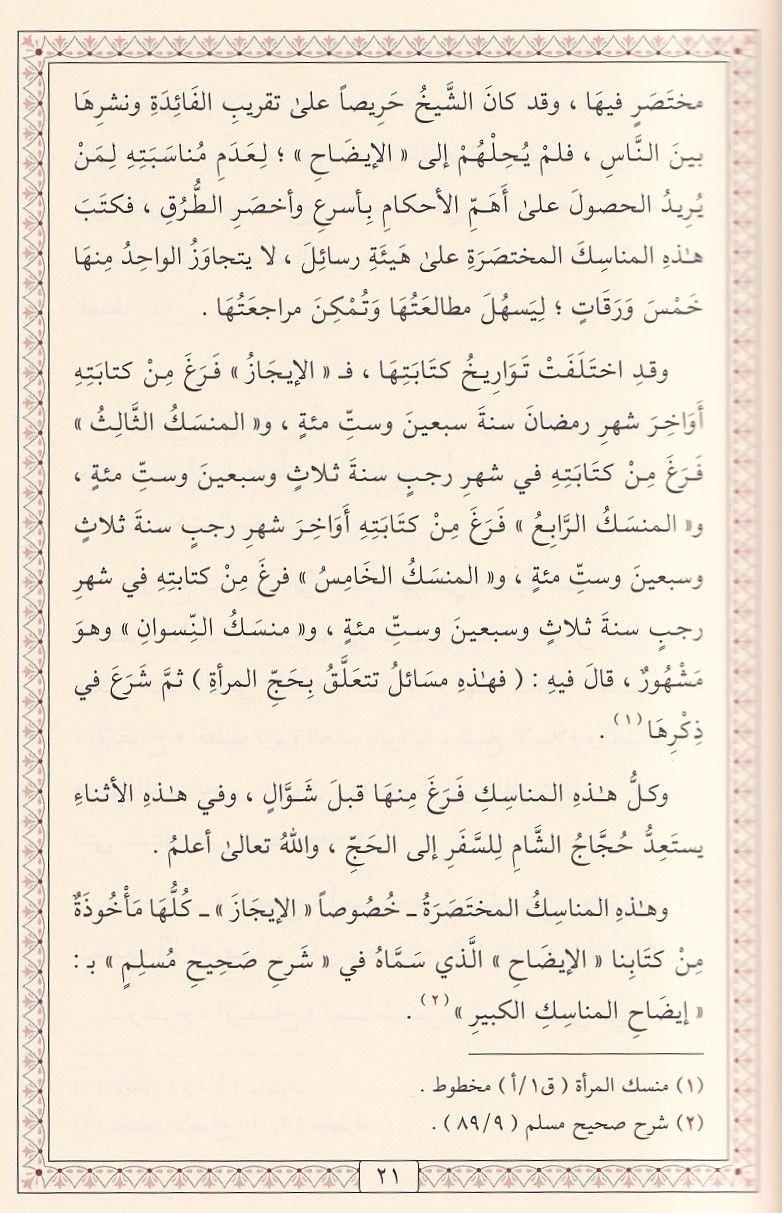 مختَصَرٍ فيهَا ، وقد كانَ الشَّيخُ حَرِيصاً علىٰ تقريبِ الفَائِدَةِ ونشرِهَا
بينَ النَّاسِ ، فلمْ يُحِلْهُمْ إلى « الإيضَاحِ » ؛ لِعَدَمِ مُناسَبَتِهِ لِمَنْ
يُرِيدُ الحصولَ علىٰ أَهَمِّ الأحكامِ بِأسرعِ وأخصَرِ الطُّرُقِ ، فكتَبَ
هـٰذهِ المناسِكَ المختصَرَةِ علىٰ هَيئَةِ رسائِلَ ، لا يتجاوَزُ الواحِدُ مِنهَا
خَمْسَ وَرَقَاتٍ ؛ لِيَسهُلَ مطالعَتُهَا وَتُمْكِنَ مراجعَتُهَا .
وقدِ اختَلَفَتْ تَوَارِيخُ كتَابَتِهَا ، فـ « الإيجَازُ » فَرَغَ مِنْ كتابَتِهِ
أَوَاخِرَ شهرِ رمضانَ سنةَ سبعينَ وستِّ مئةٍ ، و« المنسَكُ الثَّالِثُ »
فَرَغَ مِنْ كتَابَتِهِ في شهرِ رجبٍ سنةَ ثلاثٍ وسبعينَ وستِّ مئةٍ ،
و« المنسَكُ الرَّابِعُ » فَرَغَ مِنْ كتَابَتِهِ أَوَاخِرَ شهرِ رجبٍ سنةَ ثلاثٍ
وسبعينَ وستِّ مئةٍ ، و« المنسَكُ الخَامِسُ » فرغَ مِنْ كتابتِهِ في شهرِ
رجبٍ سنةَ ثلاثٍ وسبعينَ وستِّ مئةٍ ، و« منسَكُ النِّسوانِ » وهوَ
مَشْهُورٌ ، قالَ فيهِ : ( فهـٰذهِ مسَائلُ تتعَلَّقُ بِحَجِّ المرأةِ ) ثمَّ شَرَعَ في
ذِكْرِهَا (١) .
وكلُّ هـٰذهِ المناسِكِ فَرَغَ مِنهَا قبلَ شَوَّالٍ ، وفي هـٰذهِ الأثناءِ
يستَعِدُّ حُجَّاجُ الشَّامِ لِلسَّفَرِ إلى الحَجِّ ، واللهُ تعالىٰ أعلمُ .
وهـٰذهِ المناسِكُ المختَصَرَةُ ـ خُصُوصاً « الإيجَازَ » ـ كُلُّهَا مَأْخُوذَةٌ
مِنْ كتَابِنا « الإيضَاحِ » الَّذي سَمَّاهُ في « شَرحِ صَحِيحِ مُسلِمٍ » بـ :
« إيضَاحِ المناسِكِ الكبيرِ » (٢) .
(١) منسك المرأة ( ق١/أ ) مخطوط .
(٢) شرح صحيح مسلم ( ٨٩/٩ ) .
٢١